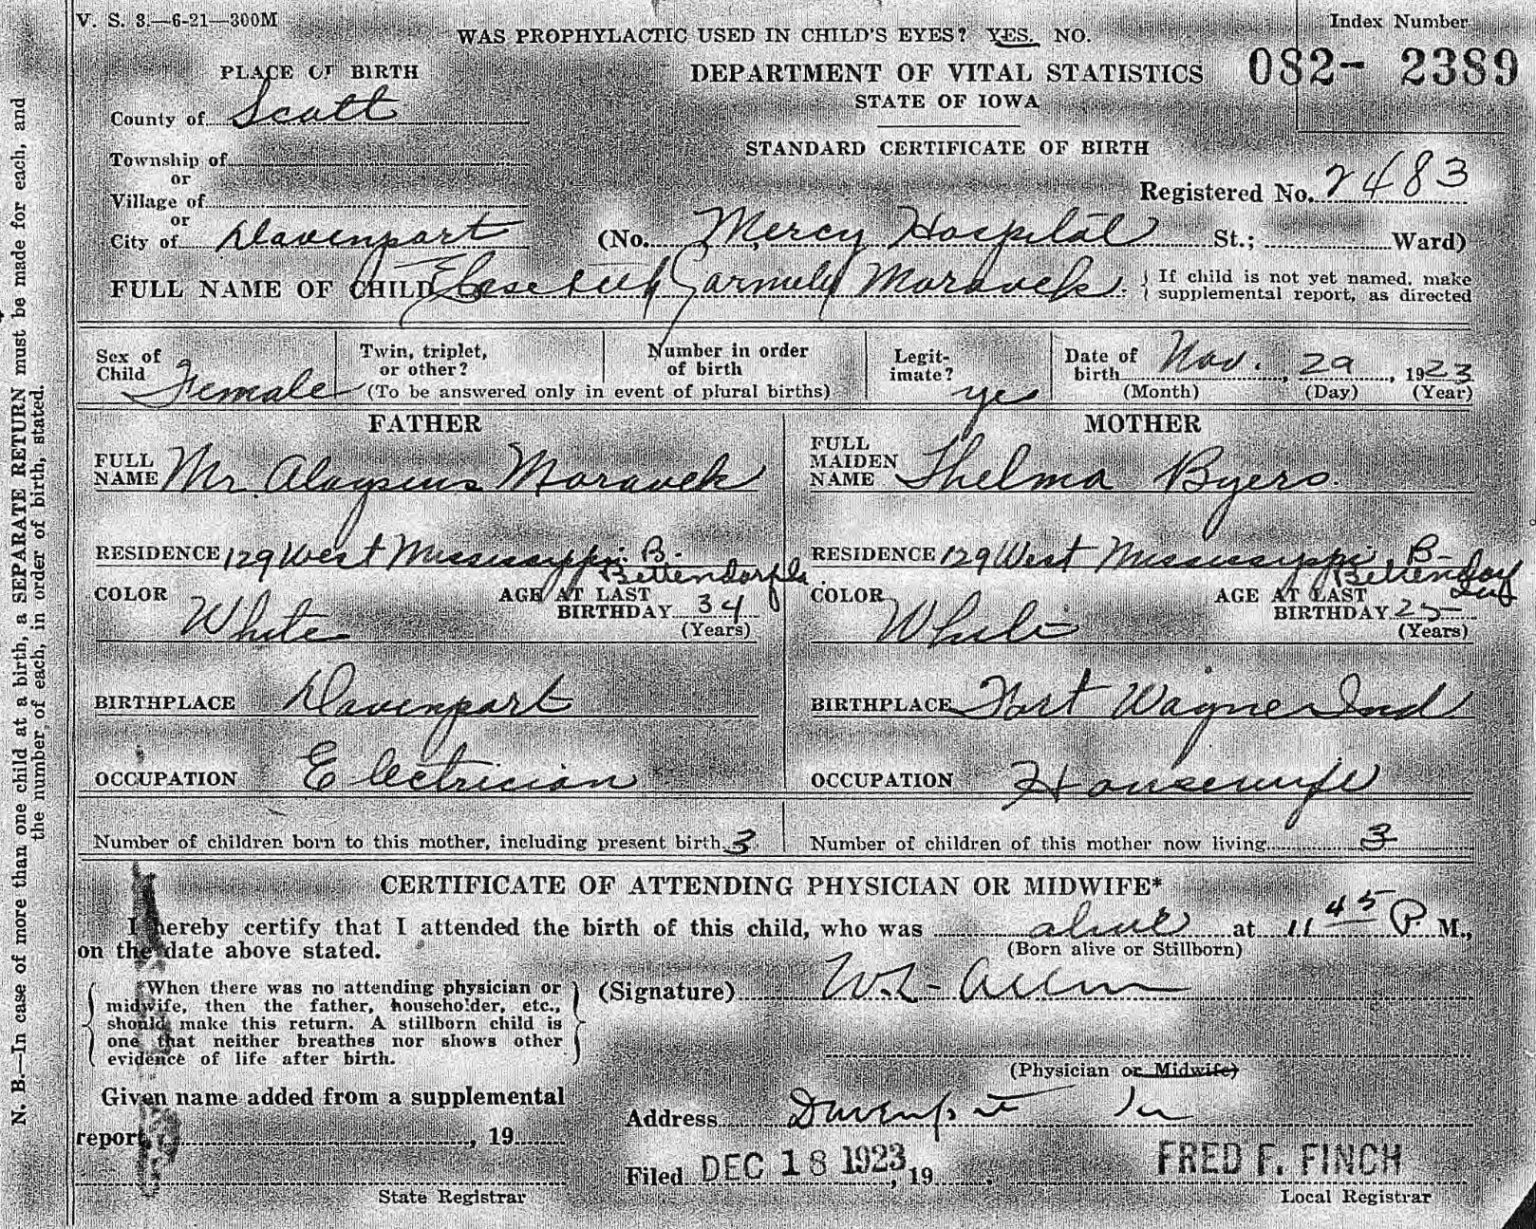 V. S. 3.—6-21—300M
WAS PROPHYLACTIC USED IN CHILD'S EYES? YES. NO.
Index Number
082- 2389
PLACE OF BIRTH
DEPARTMENT OF VITAL STATISTICS
STATE OF IOWA
County of Scott
STANDARD CERTIFICATE OF BIRTH
Township of
or
Village of
or
Registered No. 2483
City of Davenport (No. Mercy Hospital St.; Ward)
FULL NAME OF CHILD Moravek
If child is not yet named, make
supplemental report, as directed
Sex of
Child Female
Twin, triplet,
or other?
Number in order
of birth
(To be answered only in event of plural births)
Legit-
imate? yes
Date of
birth Nov. , 29 , 1923
(Month) (Day) (Year)
FATHER
FULL
NAME Mr. Aloysius Moravek
RESIDENCE 129 West Mississippi B.
Bettendorf Ia.
COLOR White
AGE AT LAST
BIRTHDAY 34
(Years)
BIRTHPLACE Davenport
OCCUPATION Electrician
MOTHER
FULL
MAIDEN
NAME Thelma Byers.
RESIDENCE 129 West Mississippi B-
Bettendorf
COLOR White
AGE AT LAST
BIRTHDAY 25
(Years)
BIRTHPLACE Fort Wayne Ind
OCCUPATION Housewife
Number of children born to this mother, including present birth 3
Number of children of this mother now living 3
CERTIFICATE OF ATTENDING PHYSICIAN OR MIDWIFE*
I hereby certify that I attended the birth of this child, who was alive at 11 45 P. M.,
(Born alive or Stillborn)
on the date above stated.
When there was no attending physician or
midwife, then the father, householder, etc.,
should make this return. A stillborn child is
one that neither breathes nor shows other
evidence of life after birth.
(Signature) W. L. Allen
(Physician or Midwife)
Given name added from a supplemental
report , 19
State Registrar
Address Davenport Ia
Filed DEC 18 1923, 19
FRED F. FINCH
Local Registrar
N. B.—In case of more than one child at a birth, a SEPARATE RETURN must be made for each, and
the number of each, in order of birth, stated.